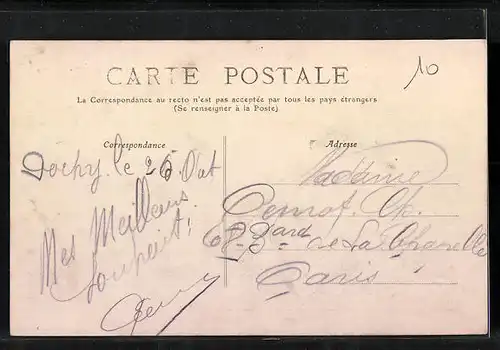 10
CARTE POSTALE
La Correspondance au recto n'est pas acceptée par tous les pays étrangers
(Se renseigner à la Poste)
Correspondance
Adresse
le 26 Out
Mes Meilleurs
Souhait!
Madame
67 Bard de La Chapelle
Paris